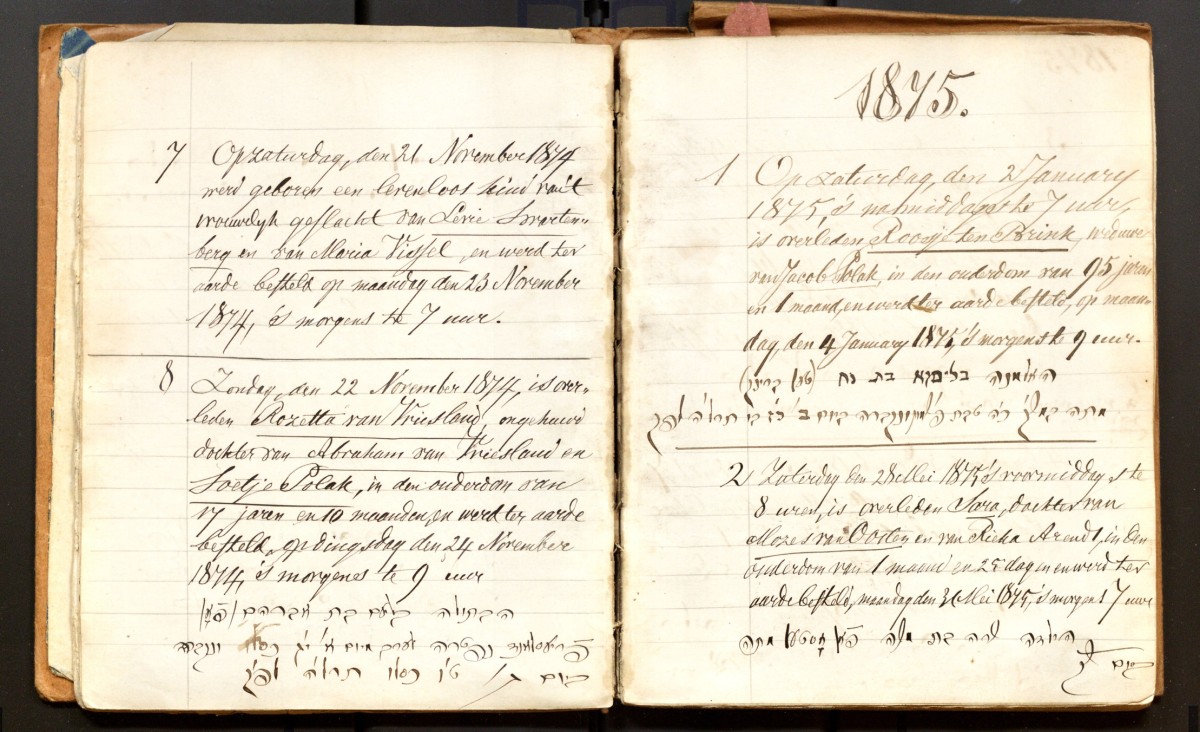 7 Op zaturdag, den 21 November 1874
werd geboren een levenloos kind van't
vrouwelijk geslacht van Levie Swarten-
berg en van Maria Vissel, en werd ter
aarde besteld op maandag den 23 November
1874, 's morgens te 7 uur.
8 Zondag, den 22 November 1874, is over-
leden Rozetta van Vriesland, ongehuwd
dochter van Abraham van Vriesland en
Soetje Polak, in den ouderdom van
17 jaren en 10 maanden, en werd ter aarde
besteld, op dingsdag den 24 November
1874, 's morgenes te 9 uur
הבתולה בת אברהם
ונקברה
ביום ג' ט"ו כסלו תרל"ה לפ"ק
1875.
1 Op zaturdag, den 2 January
1875, 's namiddags te 7 uur,
is overleden Roosje ten Brink, weduwe
van Jacob Polak, in den ouderdom van 95 jaren
en 1 maand, en werd ter aarde besteld, op maan-
dag, den 4 January 1875, 's morgens te 9 uur.
האלמנה בת
מתה כ"ה טבת ונקברה ביום ב' כ"ז בו תרל"ה לפ"ק
2 Zaturdag den 28 Mei 1875 's voormiddags te
8 uren, is overleden Sara, dochter van
Mozes van Oosten en van Rieka Arendt, in den
ouderdom van 1 maand en 25 dagen en werd ter
aarde besteld, maandag den 31 Mei 1875, 's morgens 7 uur
הילדה שרה בת משה מתה
ביום